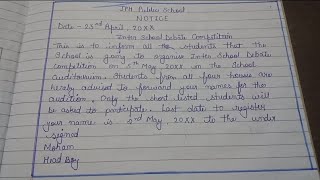 JPH Public School
NOTICE
Date - 23rd April, 20XX
Inter School Debate Competition
This is to inform all the students that the
School is going to organise Inter School Debate
competition on 5th May 20XX in the School
Auditorium. Students from all four houses are
hereby advised to forward your names for the
audition. Only the short listed students will
be asked to participate. Last date to register
your name is 2nd May, 20XX to the under
signed
Moham
Head Boy